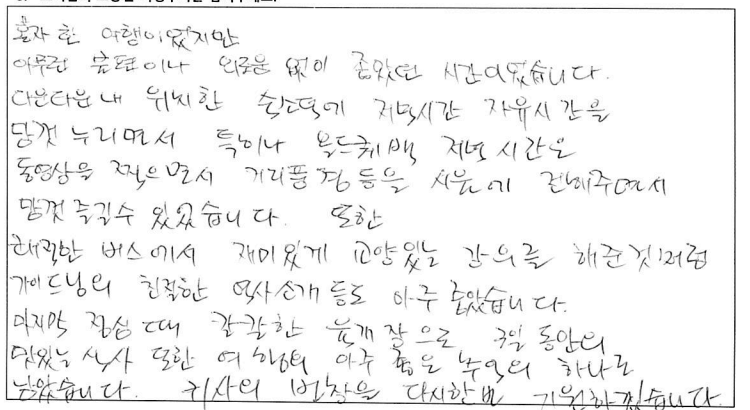 혼자 한 여행이었지만
아무런 불편이나 외로움 없이 좋았던 시간이었습니다.
다운타운내 위치한 숙소덕에 저녁시간 자유시간을
맘껏 누리면서 특히나 올드퀘백 저녁 시간은
동영상을 찍으면서 거리풍경등을 서울에 전해주면서
맘껏 즐길수 있었습니다. 또한
쾌적한 버스에서 재미있게 교양있는 강의를 해준것처럼
가이드님의 친절한 역사소개 등도 아주 좋았습니다.
마지막 점심 때 칼칼한 육개장으로 3일 동안의
맛있는 식사 또한 여행의 아주 좋은 추억의 하나로
남았습니다. 귀사의 번창을 다시한번 기원하겠습니다.